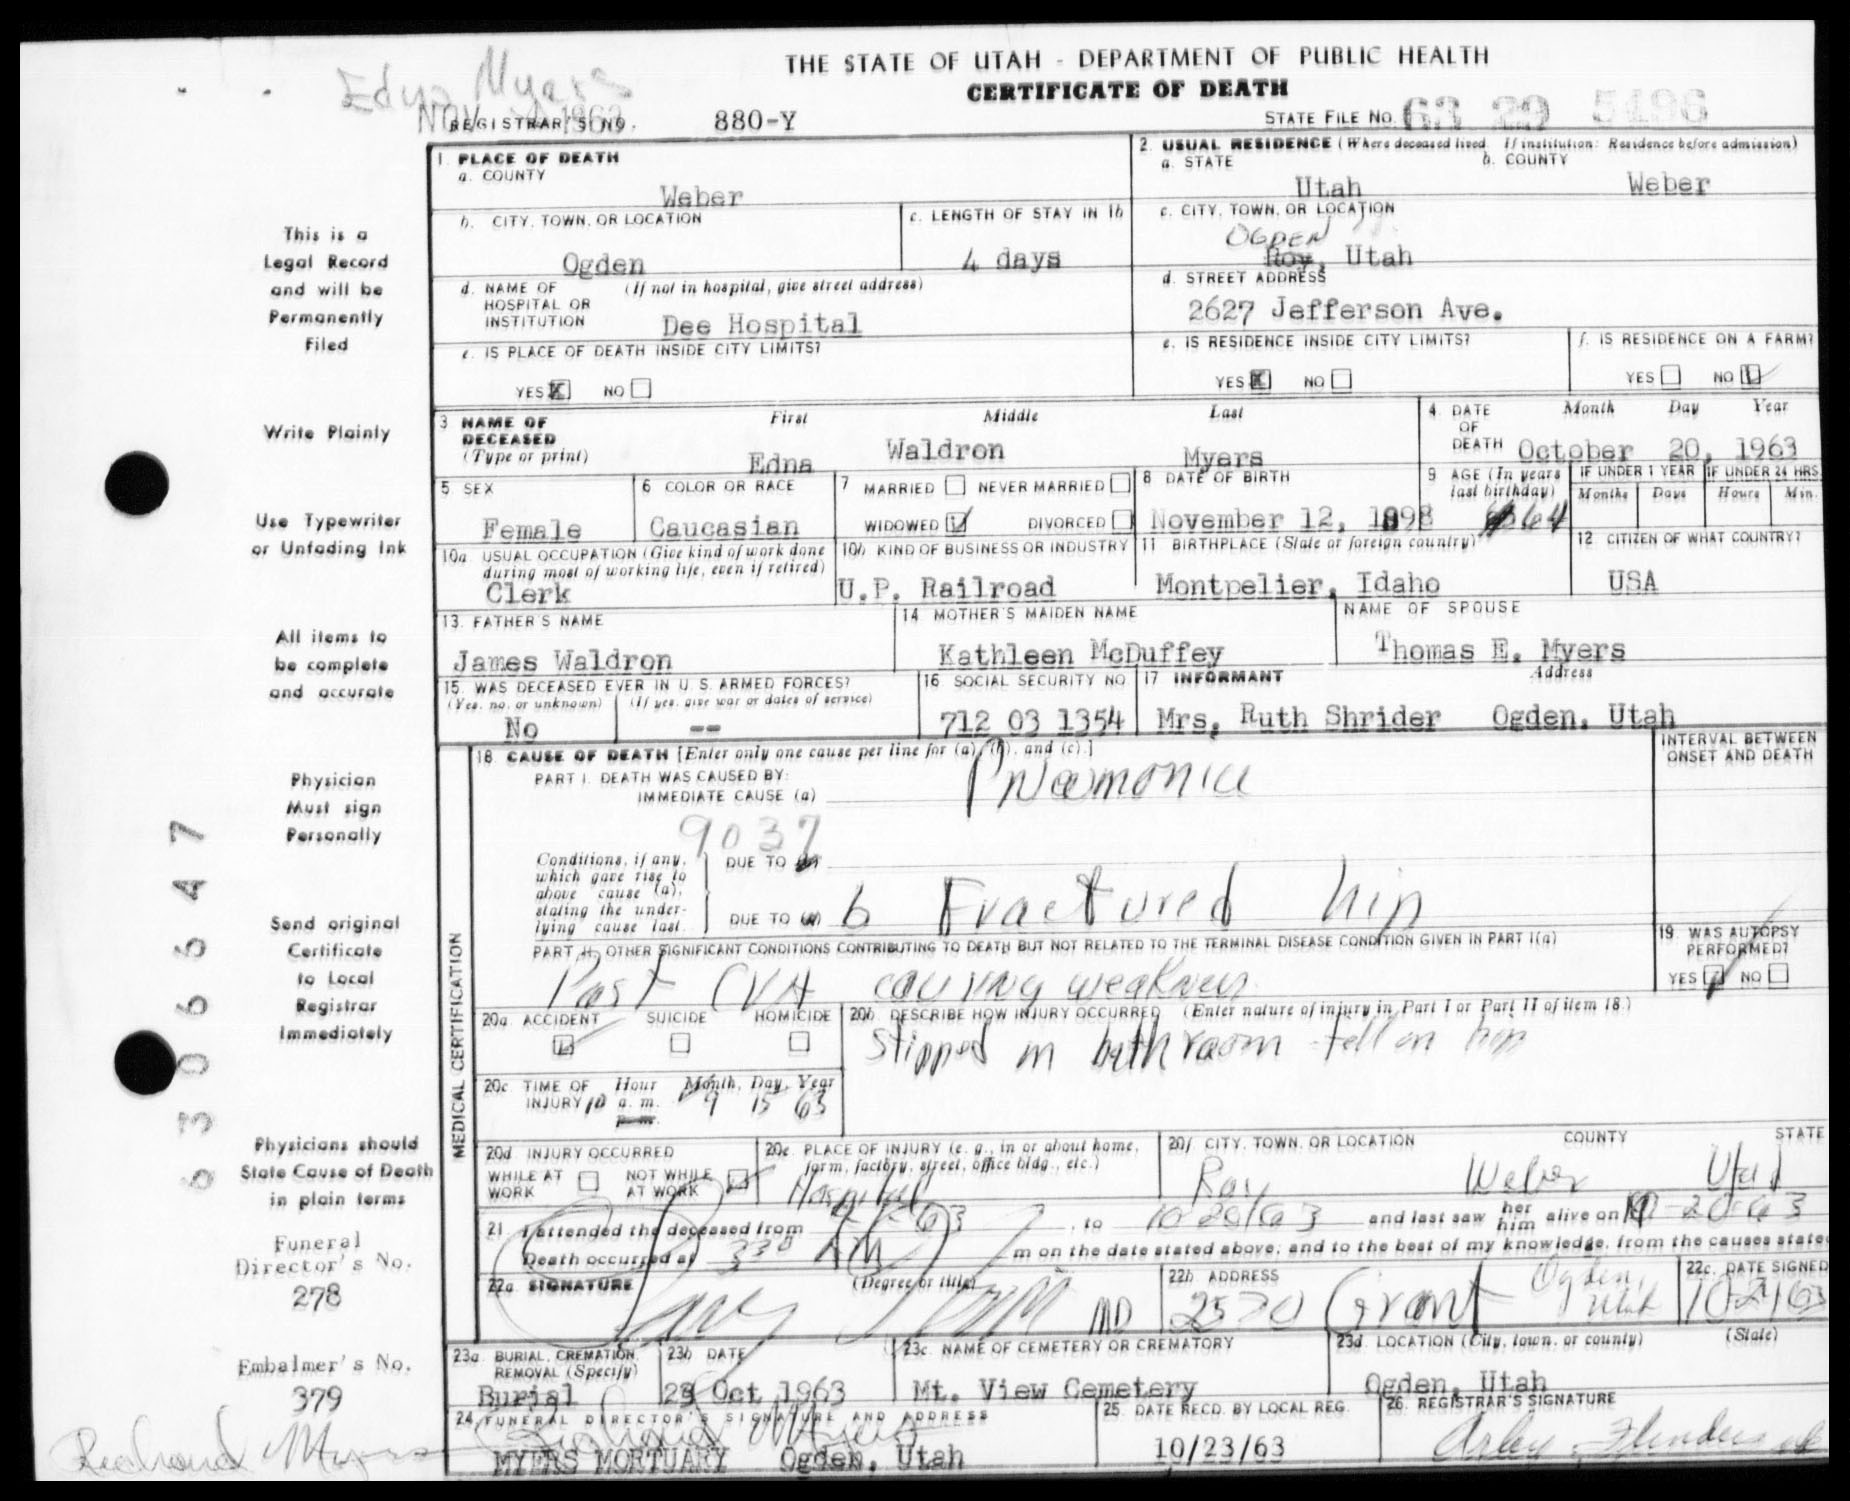 THE STATE OF UTAH - DEPARTMENT OF PUBLIC HEALTH
CERTIFICATE OF DEATH
Edna Myers
NOV 1963
REGISTRAR'S NO. 880-Y
STATE FILE NO. 63 29 5496
This is a
Legal Record
and will be
Permanently
Filed
Write Plainly
Use Typewriter
or Unfading Ink
All items to
be complete
and accurate
Physician
Must sign
Personally
Send original
Certificate
to Local
Registrar
Immediately
Physicians should
State Cause of Death
in plain terms
Funeral
Director's No.
278
Embalmer's No.
379
Richard Myers
1. PLACE OF DEATH
a. COUNTY
Weber
b. CITY, TOWN, OR LOCATION
Ogden
c. LENGTH OF STAY IN 1b
4 days
d. NAME OF (If not in hospital, give street address)
HOSPITAL OR
INSTITUTION Dee Hospital
e. IS PLACE OF DEATH INSIDE CITY LIMITS?
YES X NO
2. USUAL RESIDENCE (Where deceased lived. If institution: Residence before admission)
a. STATE b. COUNTY
Utah Weber
c. CITY, TOWN, OR LOCATION
OGDEN
Roy, Utah
d. STREET ADDRESS
2627 Jefferson Ave.
e. IS RESIDENCE INSIDE CITY LIMITS?
YES X NO
f. IS RESIDENCE ON A FARM?
YES NO
3 NAME OF DECEASED (Type or print)
First Middle Last
Edna Waldron Myers
4. DATE OF DEATH
Month Day Year
October 20, 1963
5 SEX
Female
6 COLOR OR RACE
Caucasian
7 MARRIED NEVER MARRIED
WIDOWED DIVORCED
8 DATE OF BIRTH
November 12, 1898
9 AGE (In years last birthday)
64
IF UNDER 1 YEAR IF UNDER 24 HRS.
Months Days Hours Min.
10a USUAL OCCUPATION (Give kind of work done
during most of working life, even if retired)
Clerk
10b KIND OF BUSINESS OR INDUSTRY
U.P. Railroad
11 BIRTHPLACE (State or foreign country)
Montpelier, Idaho
12 CITIZEN OF WHAT COUNTRY?
USA
13. FATHER'S NAME
James Waldron
14 MOTHER'S MAIDEN NAME
Kathleen McDuffey
NAME OF SPOUSE
Thomas E. Myers
15. WAS DECEASED EVER IN U. S. ARMED FORCES?
(Yes, no, or unknown) (If yes, give war or dates of service)
No --
16 SOCIAL SECURITY NO.
712 03 1354
17 INFORMANT Address
Mrs. Ruth Shrider Ogden, Utah
MEDICAL CERTIFICATION
18 CAUSE OF DEATH [Enter only one cause per line for (a), (b), and (c).]
PART I. DEATH WAS CAUSED BY:
IMMEDIATE CAUSE (a) Pneumonia
INTERVAL BETWEEN
ONSET AND DEATH
9037
Conditions, if any,
which gave rise to
above cause (a),
stating the under-
lying cause last.
DUE TO
DUE TO b Fractured hip
PART II. OTHER SIGNIFICANT CONDITIONS CONTRIBUTING TO DEATH BUT NOT RELATED TO THE TERMINAL DISEASE CONDITION GIVEN IN PART I(a)
Past CVA causing weakness
19. WAS AUTOPSY
PERFORMED?
YES NO
20a. ACCIDENT SUICIDE HOMICIDE
20b. DESCRIBE HOW INJURY OCCURRED (Enter nature of injury in Part I or Part II of item 18.)
Slipped in bathroom - fell on hip
20c TIME OF INJURY
Hour Month, Day, Year
10 a. m. p.m. 9 15 63
20d INJURY OCCURRED
WHILE AT WORK NOT WHILE AT WORK
20e. PLACE OF INJURY (e. g., in or about home,
farm, factory, street, office bldg., etc.)
Hospital
20f. CITY, TOWN, OR LOCATION COUNTY STATE
Roy Weber Utah
21. I attended the deceased from 63, to 10-20-63 and last saw her him alive on 10-20-63
Death occurred at 3 30 AM m on the date stated above; and to the best of my knowledge, from the causes stated
22a SIGNATURE (Degree or title)
MD
22b ADDRESS
2570 Grant Ogden, Utah
22c. DATE SIGNED
10-21-63
23a. BURIAL, CREMATION,
REMOVAL (Specify)
Burial
23b DATE
23 Oct 1963
23c. NAME OF CEMETERY OR CREMATORY
Mt. View Cemetery
23d. LOCATION (City, town, or county) (State)
Ogden, Utah
24. FUNERAL DIRECTOR'S SIGNATURE AND ADDRESS
Richard Myers
MYERS MORTUARY Ogden, Utah
25. DATE RECD. BY LOCAL REG.
10/23/63
26. REGISTRAR'S SIGNATURE